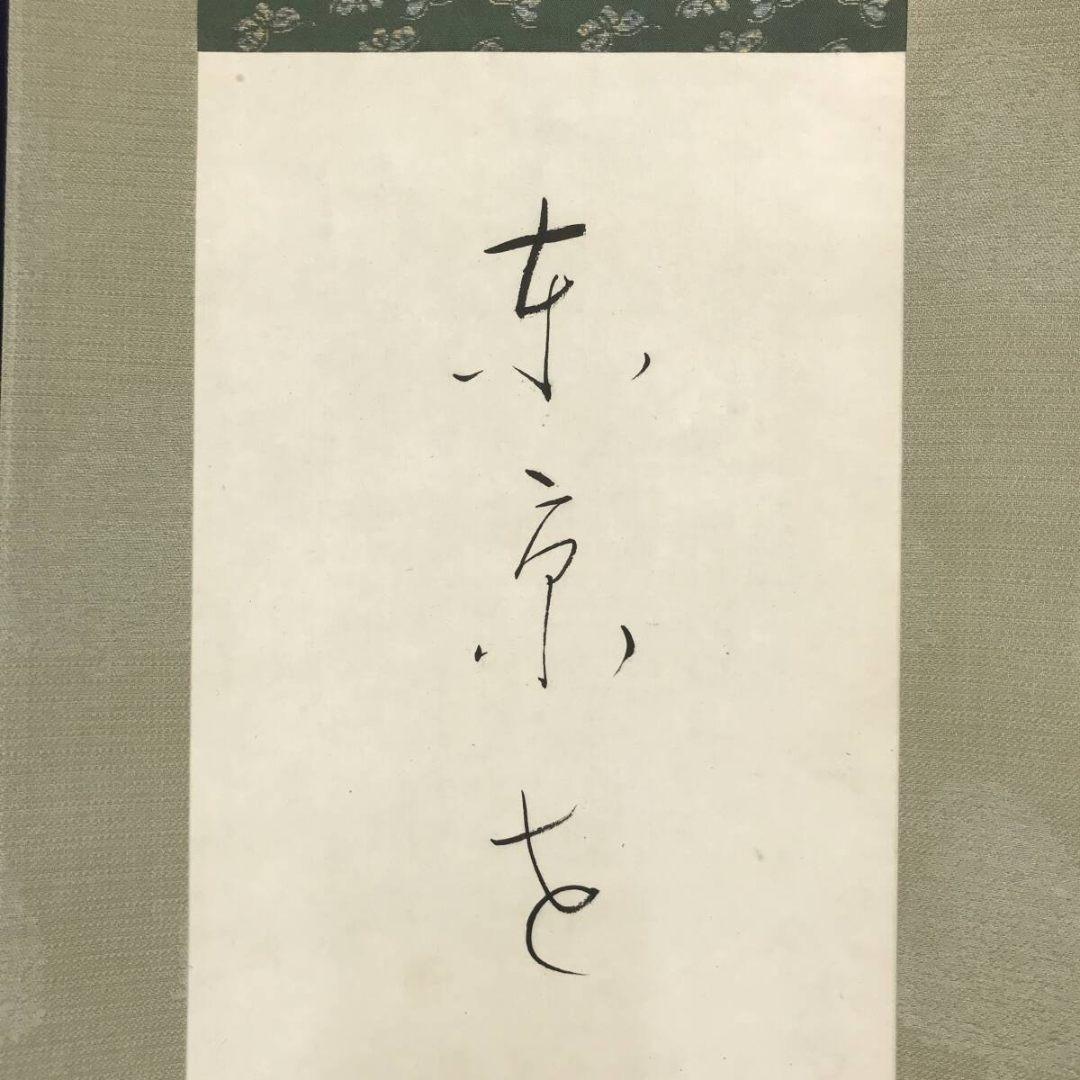 東京を